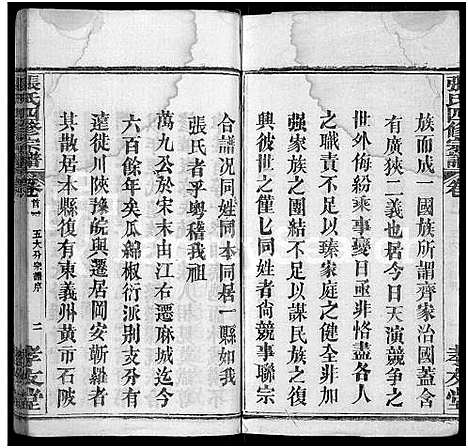 張氏四修宗譜 卷
族而成一國族所謂齊家治國蓋含
有廣狹二義也居今日天演競爭之
世外侮紛乘事變亟非恪盡各人
之職責不可以臻家庭之健全非加
強家族之團結不可以謀民族之復
興彼世之僅匕同姓者尙競事聯宗
孝友堂
合譜況同姓同本同居一縣如我
張氏者乎粵稽我祖
萬九公於宋末由江右遷麻城迄今
六百餘年矣瓜綿椒衍派别支分有
遠徙川陝豫皖與遷居岡安蘄羅者
其散居本縣復有東義州黄市石陂
張氏四修宗譜 卷首一 五大分宗譜序 二 孝友堂